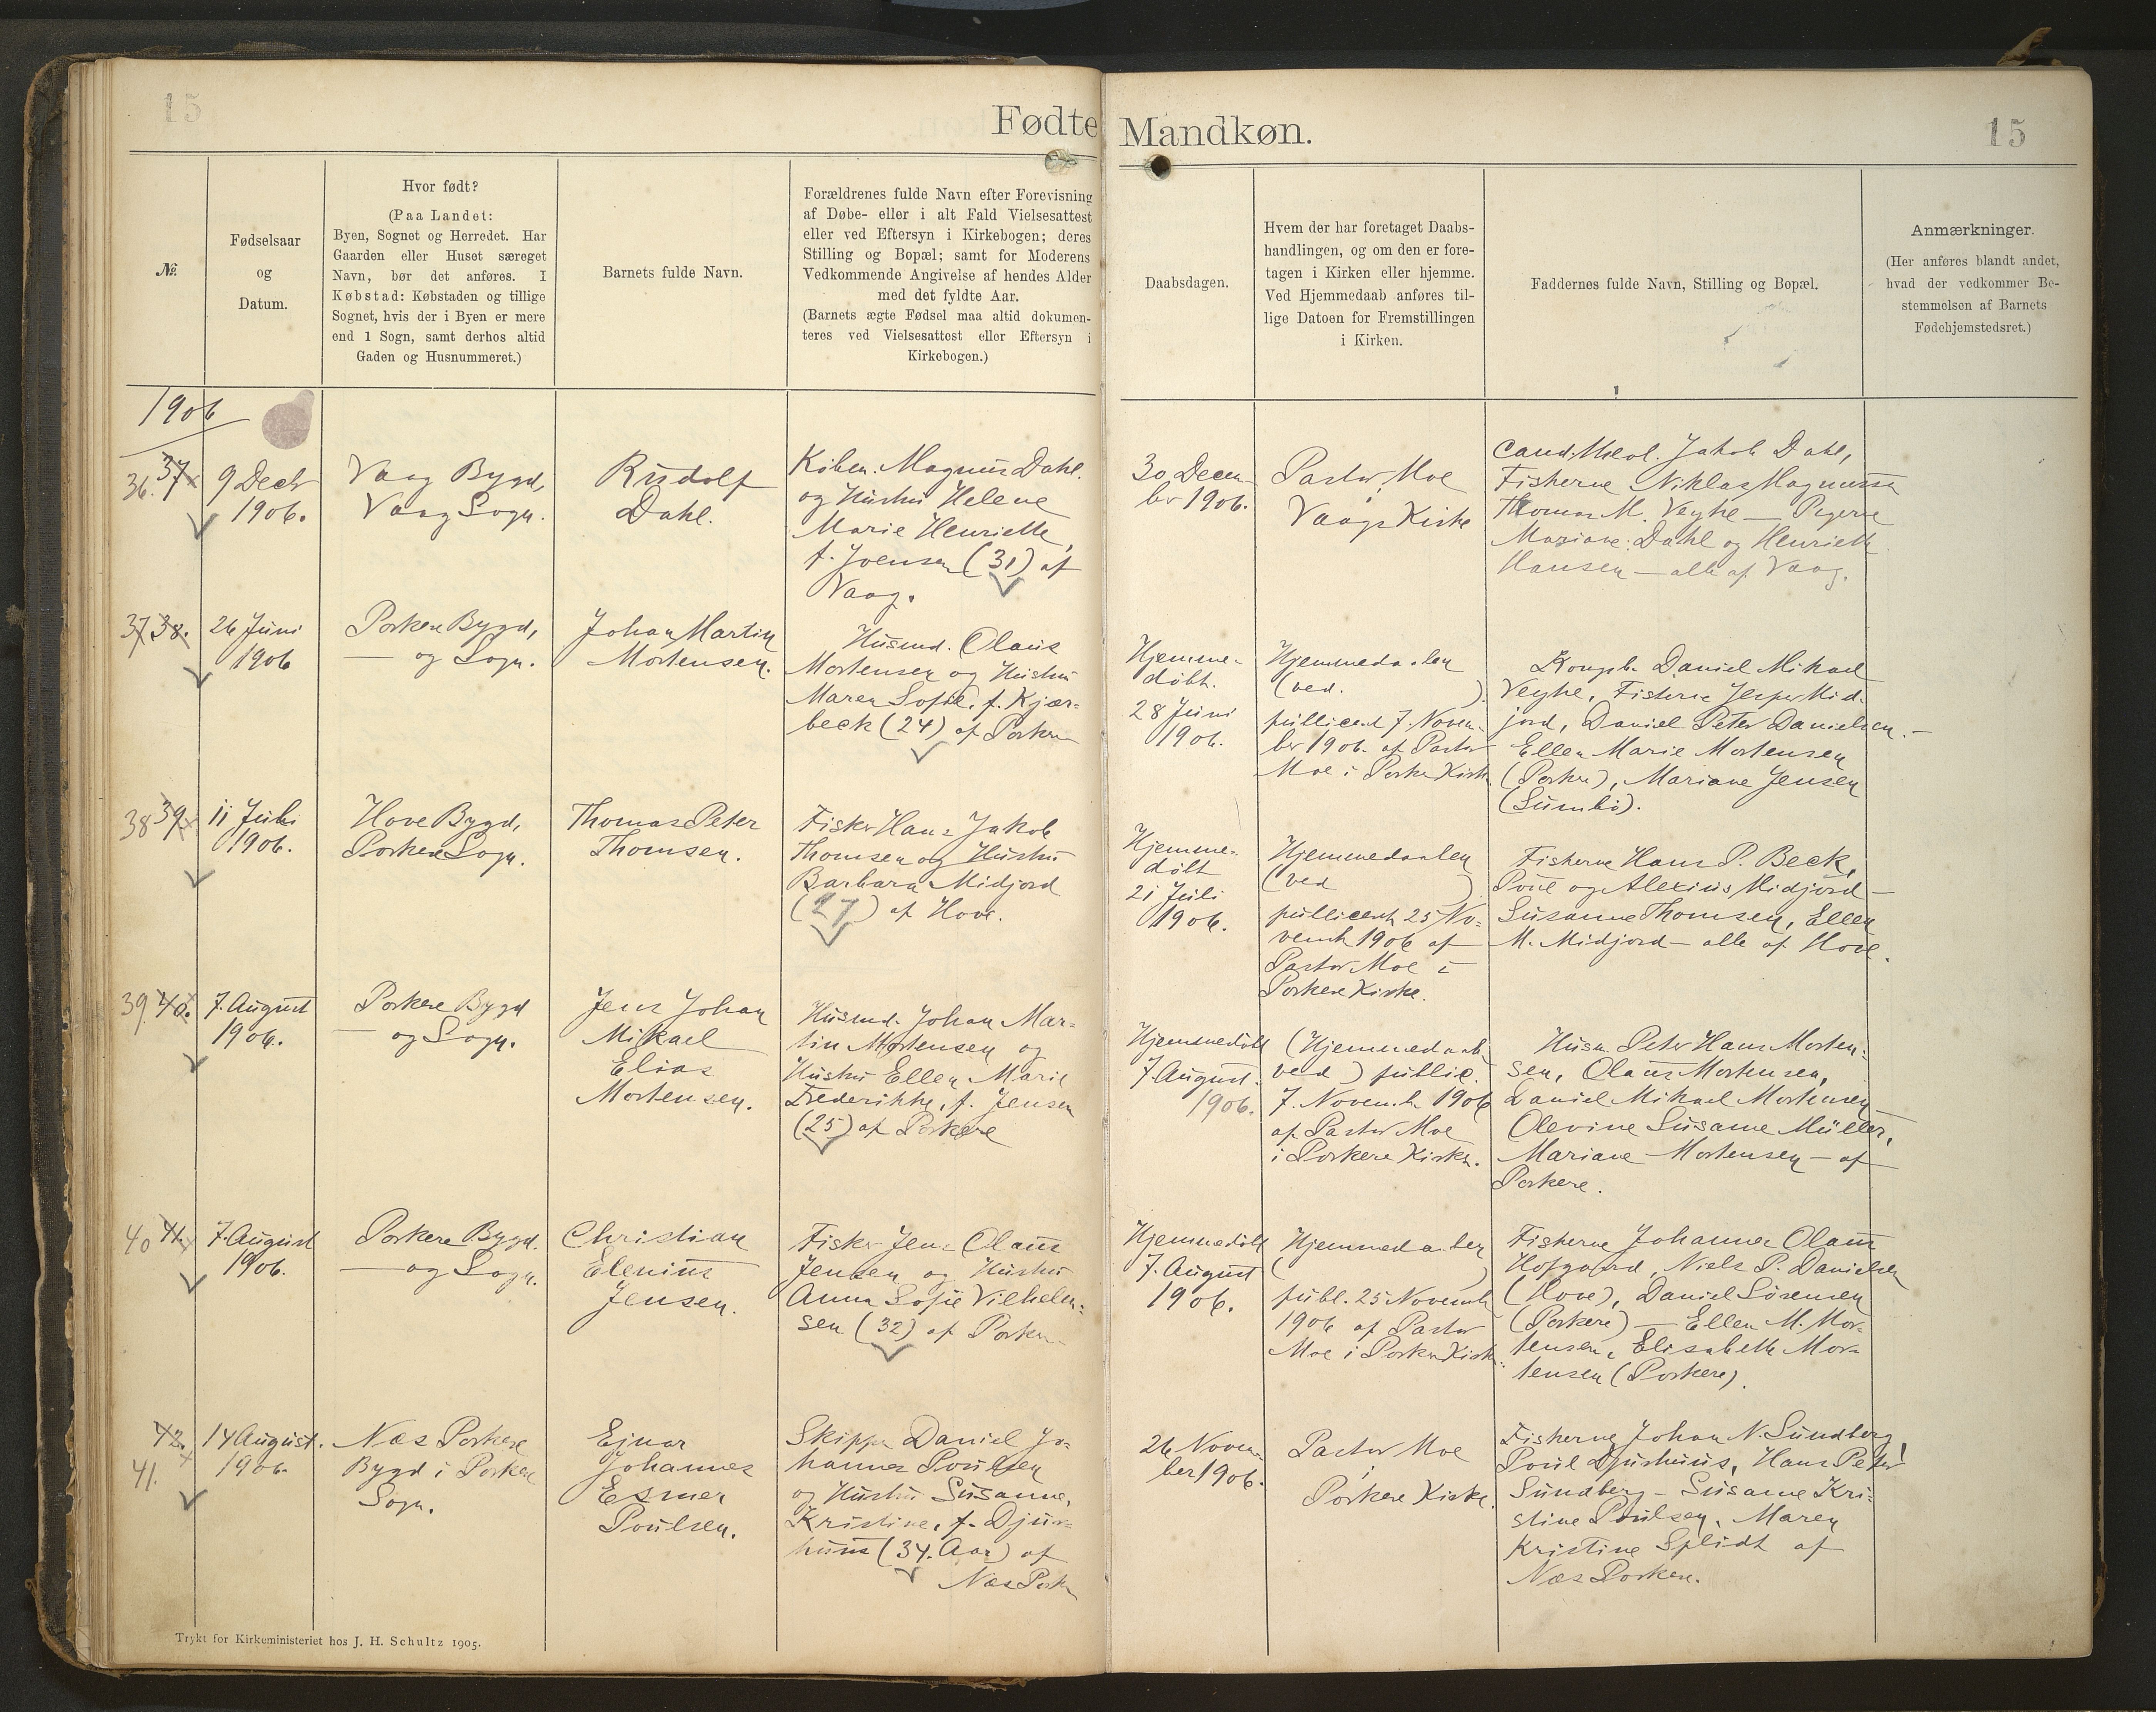 15
Fødte Mandkøn.
15
№
Fødselsaar
og
Datum.
Hvor født?
(Paa Landet:
Byen, Sognet og Herredet. Har
Gaarden eller Huset særeget
Navn, bør det anføres. I
Købstad: Købstaden og tillige
Sognet, hvis der i Byen er mere
end 1 Sogn, samt derhos altid
Gaden og Husnummeret.)
Barnets fulde Navn.
Forældrenes fulde Navn efter Forevisning
af Døbe- eller i alt Fald Vielsesattest
eller ved Eftersyn i Kirkebogen; deres
Stilling og Bopæl; samt for Moderens
Vedkommende Angivelse af hendes Alder
med det fyldte Aar.
(Barnets ægte Fødsel maa altid dokumen-
teres ved Vielsesattest eller Eftersyn i
Kirkebogen.)
Daabsdagen.
Hvem der har foretaget Daabs-
handlingen, og om den er fore-
tagen i Kirken eller hjemme.
Ved Hjemmedaab anføres til-
lige Datoen for Fremstillingen
i Kirken.
Faddernes fulde Navn, Stilling og Bopæl.
Anmærkninger.
(Her anføres blandt andet,
hvad der vedkommer Be-
stemmelsen af Barnets
Fødehjemstedsret.)
1906
36. 37
9 Decb
1906.
Vaag Bygd,
Vaag Sogn.
Rudolf
Dahl.
Købm. Magnus Dahl.
og Hustru Helene
Marie Henriette,
f. Joensen (31) af
Vaag.
30 Decem-
ber 1906.
Pastor Moe
Vaags Kirke
Cand. theol. Jakob Dahl,
Fiskerne Niklas Magnussen
Thomas M. Veyhe — Pigerne
Mariane Dahl og Henriette
Hansen — alle af Vaag.
37 38.
26 Juni
1906
Porkere Bygd,
— og Sogn.
Johan Martin
Mortensen.
Husmd. Olaus
Mortensen og Hustru
Maren Sofie, f. Kjær-
beck (24) af Porkere
Hjemme-
døbt.
28 Juni
1906.
Hjemmedaaben
(ved. )
publiceret 7. Novem-
ber 1906. af Pastor
Moe i Porkere Kirke
Kongsb. Daniel Mikael
Veyhe, Fiskerne Jesper Mid-
jord, Daniel Peter Danielsen. —
Ellen Marie Mortensen
(Porkere), Mariane Jensen
(Sumbø).
38 39.
11 Juli
1906.
Hove Bygd,
Porkere Sogn.
Thomas Peter
Thomsen.
Fisker Hans Jakob
Thomsen og Hustru
Barbara Midjord
(27) af Hove.
Hjemme-
døbt
21 Juli
1906.
Hjemmedaaben
(ved )
publiceret 25 No-
vemb 1906 af
Pastor Moe i
Porkere Kirke.
Fiskerne Hans P. Beck,
Poul og Alexius Midjord —
Susanne Thomsen, Ellen
M. Midjord — alle af Hove.
39. 40.
7. August
1906.
Porkere Bygd
— og Sogn.
Jens Johan
Mikael
Elias
Mortensen.
Husmd. Johan Mar-
tin Mortensen og
Hustru Ellen Marie
Frederikke, f. Jensen
(25) af Porkere
Hjemmedøbt
7. August.
1906.
(Hjemmedaab
ved ) public.
7. Novemb 1906
af Pastor Moe
i Porkere Kirke.
Husm. Peter Hans Morten-
sen, Olaus Mortensen,
Daniel Mikael Mortensen —
Olevine Susanne Müller,
Mariane Mortensen — af
Porkere.
40 41.
7. August
1906.
Porkere Bygd.
— og Sogn.
Christian
Elenius
Jensen.
Fisker Jens Olaus
Jensen og Hustru
Anna Sofie Vilhelm-
sen (32) af Porkere
Hjemmedøbt
7. August
1906.
Hjemmedaaben
( )
publ. 25 Novemb
1906 af Pastor
Moe i Porkere Kirke.
Fiskerne Johannes Olaus
Hofgaard, Niels P. Danielsen
(Hove), Daniel Sörensen
(Porkere) — Ellen M. Mor-
tensen, Elisabeth Mor-
tensen (Porkere).
42.
41.
14 August.
1906.
Næs Porkere
Bygd i Porkere
Sogn.
Ejnar
Johannes
Esmer
Poulsen.
Skipper Daniel Jo-
hannes Poulsen
og Hustru Susanne,
Kristine, f. Djur-
huus (34. Aar) af
Næs Porkere
26 Novem-
ber 1906.
Pastor Moe
Porkere Kirke.
Fiskerne Johan N. Sundberg,
Poul Djurhuus, Hans Peter
Sundberg — Susanne Kri-
stine Poulsen, Maren
Kristine Splidt af
Næs Porkere.
Trykt for Kirkeministeriet hos J. H. Schultz 1905.